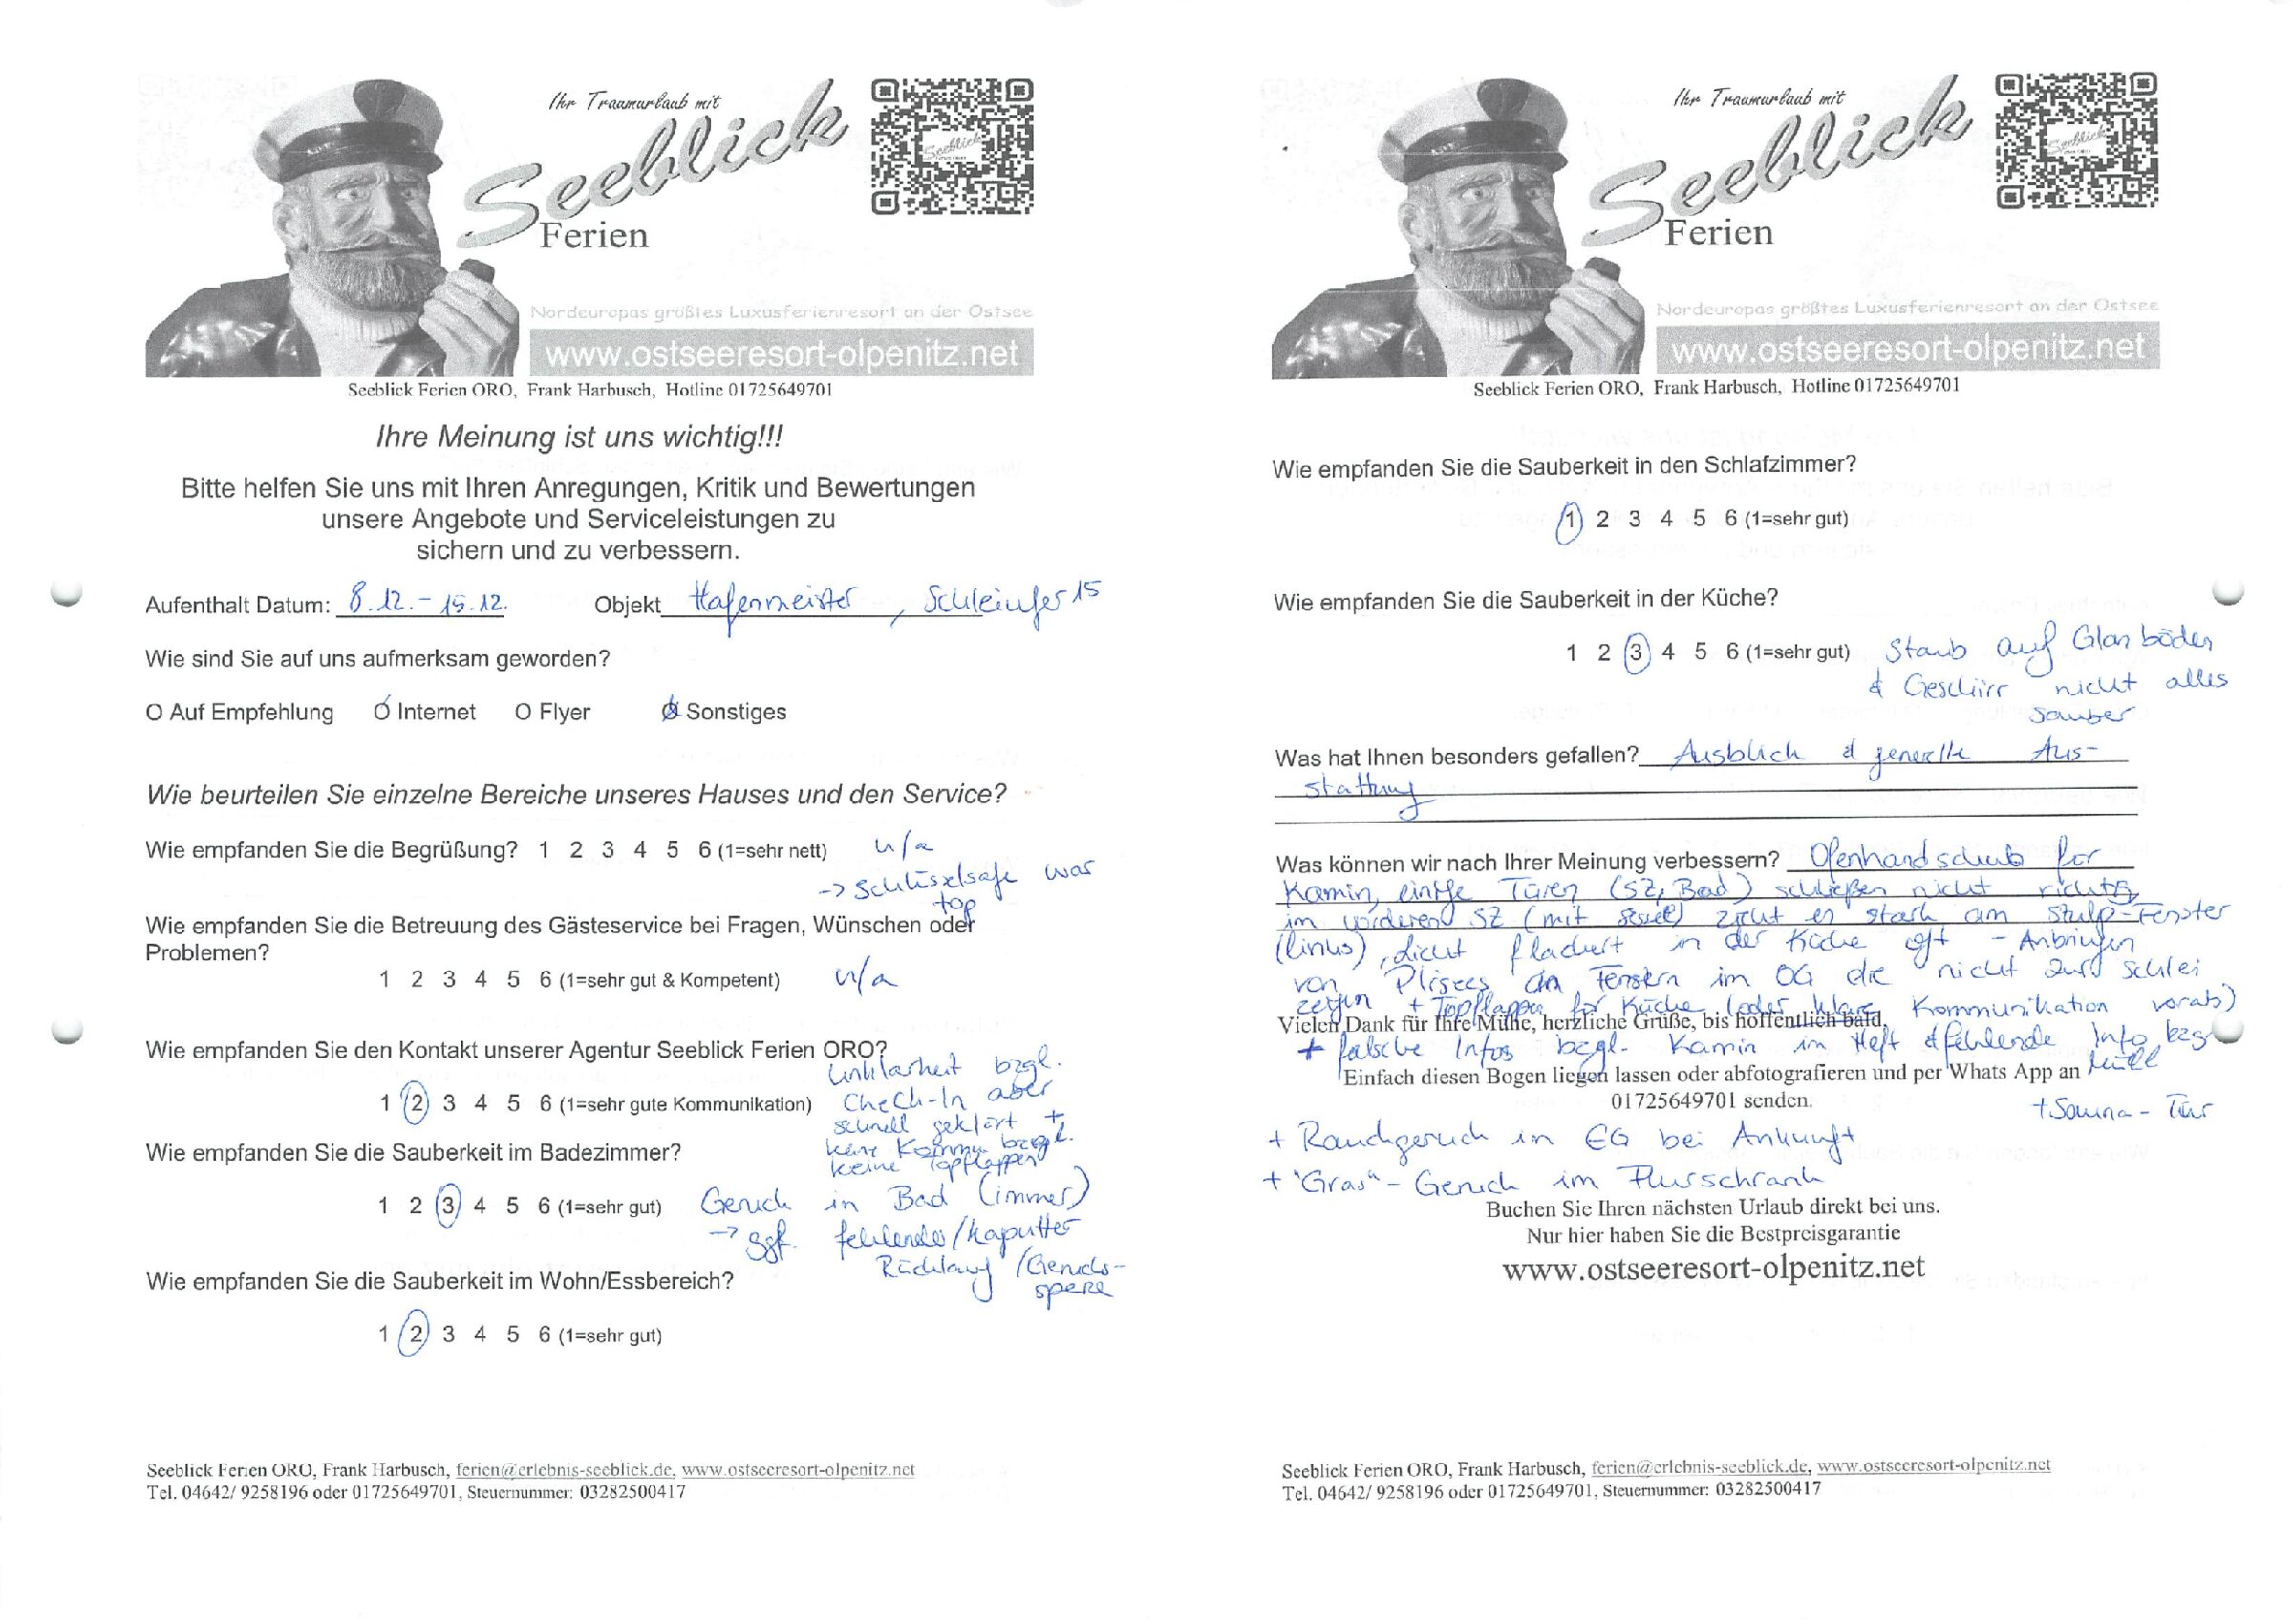 Ihr Traumurlaub mit
Seeblick
Ferien
Seeblick
Nordeuropas größtes Luxusferienresort an der Ostsee
www.ostseeresort-olpenitz.net
Seeblick Ferien ORO, Frank Harbusch, Hotline 01725649701
Ihre Meinung ist uns wichtig!!!
Bitte helfen Sie uns mit Ihren Anregungen, Kritik und Bewertungen
unsere Angebote und Serviceleistungen zu
sichern und zu verbessern.
Aufenthalt Datum: 8.12. - 15.12. Objekt Hafenmeister, Schleiufer 15
Wie sind Sie auf uns aufmerksam geworden?
O Auf Empfehlung O Internet O Flyer O Sonstiges
Wie beurteilen Sie einzelne Bereiche unseres Hauses und den Service?
Wie empfanden Sie die Begrüßung? 1 2 3 4 5 6 (1=sehr nett) n/a
-> Schlüsselsafe war
top
Wie empfanden Sie die Betreuung des Gästeservice bei Fragen, Wünschen oder
Problemen?
1 2 3 4 5 6 (1=sehr gut & Kompetent) n/a
Wie empfanden Sie den Kontakt unserer Agentur Seeblick Ferien ORO?
Unklarheit bzgl.
1 2 3 4 5 6 (1=sehr gute Kommunikation) Check-In aber
schnell geklärt +
keine Kommu bzgl.
Wie empfanden Sie die Sauberkeit im Badezimmer?
keine Topflappen
1 2 3 4 5 6 (1=sehr gut) Geruch in Bad (immer)
-> ggf. fehlender/kaputter
Rücklauf/Geruchs-
spere
Wie empfanden Sie die Sauberkeit im Wohn/Essbereich?
1 2 3 4 5 6 (1=sehr gut)
Seeblick Ferien ORO, Frank Harbusch, ferien@erlebnis-seeblick.de, www.ostseeresort-olpenitz.net
Tel. 04642/ 9258196 oder 01725649701, Steuernummer: 03282500417
Ihr Traumurlaub mit
Seeblick
Ferien
Seeblick
Nordeuropas größtes Luxusferienresort an der Ostsee
www.ostseeresort-olpenitz.net
Seeblick Ferien ORO, Frank Harbusch, Hotline 01725649701
Wie empfanden Sie die Sauberkeit in den Schlafzimmer?
1 2 3 4 5 6 (1=sehr gut)
Wie empfanden Sie die Sauberkeit in der Küche?
1 2 3 4 5 6 (1=sehr gut) Staub auf Glasböden
& Geschirr nicht alles
sauber
Was hat Ihnen besonders gefallen? Ausblick & generelle Aus-
stattung
Was können wir nach Ihrer Meinung verbessern? Ofenhandschuh für
Kamin, einige Türen (SZ, Bad) schließen nicht richtig,
im vorderen SZ (mit Sessel) zieht es stark am Stulp-Fenster
(links), Licht flackert in der Küche oft - Anbringen
von Plisees an Fenstern im OG die nicht zur Schlei
zeigen + Topflappen für Küche (oder klare Kommunikation vorab)
Vielen Dank für Ihre Mühe, herzliche Grüße, bis hoffentlich bald,
+ falsche Infos bzgl. Kamin im Heft & fehlende Info bzgl.
Müll
Einfach diesen Bogen liegen lassen oder abfotografieren und per Whats App an
01725649701 senden.
+ Sauna - Tür
+ Rauchgeruch in EG bei Ankunft
+ "Gras" - Geruch im Flurschrank
Buchen Sie Ihren nächsten Urlaub direkt bei uns.
Nur hier haben Sie die Bestpreisgarantie
www.ostseeresort-olpenitz.net
Seeblick Ferien ORO, Frank Harbusch, ferien@erlebnis-seeblick.de, www.ostseeresort-olpenitz.net
Tel. 04642/ 9258196 oder 01725649701, Steuernummer: 03282500417